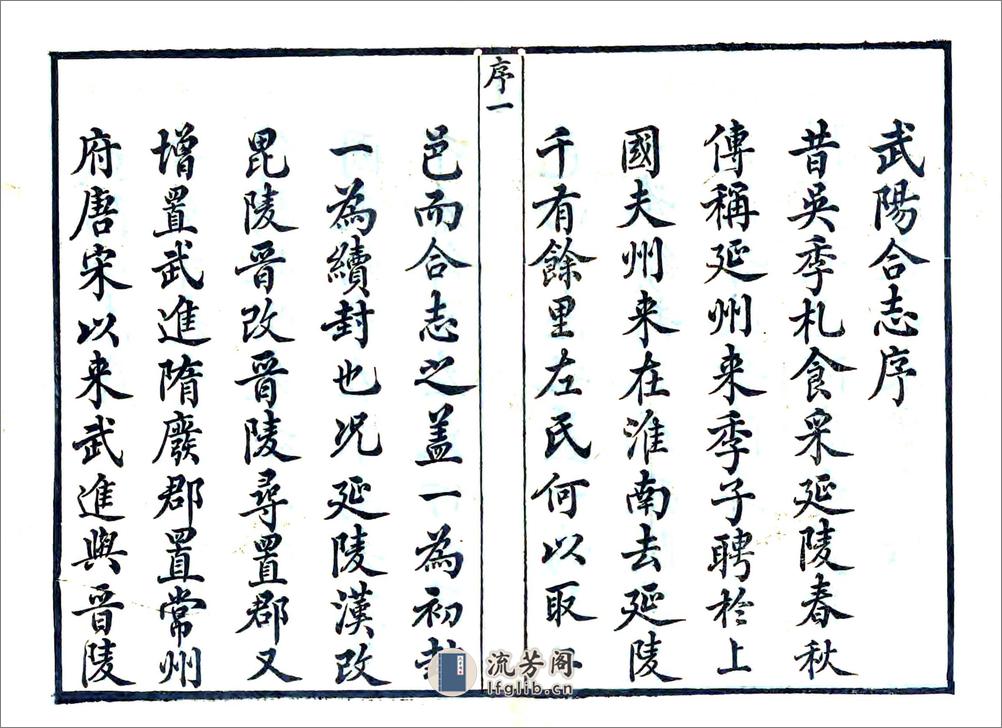 武陽合志序
昔吳季札食采延陵春秋
傳稱延州來季子聘於上
國夫州来在淮南去延陵
千有餘里左氏何以取
序一
邑而合志之蓋一為初封
一為續封也况延陵漢改
毘陵晉改晉陵尋置郡又
增置武進隋廢郡置常州
府唐宋以来武進與晉陵
流芳阁
lfglib.cn